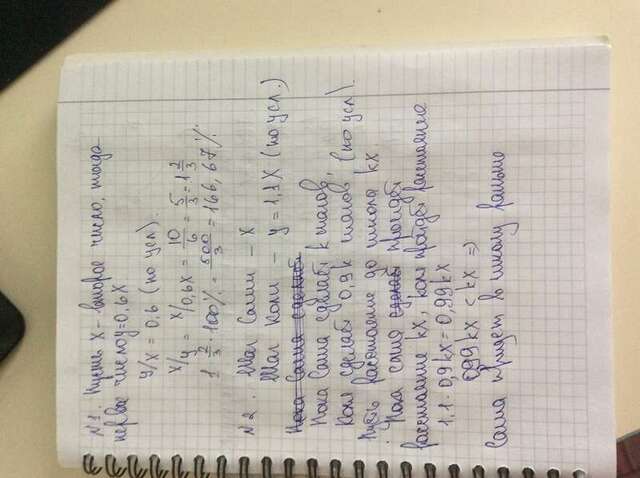 N1. Пусть X - второе число, тогда
первое число y=0,6X
y/x = 0,6 (по усл).
x/y = x/0,6x = 10/6 = 5/3 = 1 2/3
1 2/3 · 100% = 500/3 = 166,67%
N2. Шаг Саши - X
Шаг Коли - y = 1,1X (по усл.)
Пока Саша сделает
Пока Саша сделает k шагов,
Коля сделает 0,9k шагов (по усл).
Пусть расстояние до школы kx.
Пока Саша сделает пройдёт
расстояние kx, Коля пройдёт расстояние
1,1 · 0,9kx = 0,99kx
0,99kx < kx ⇒
Саша придет в школу раньше